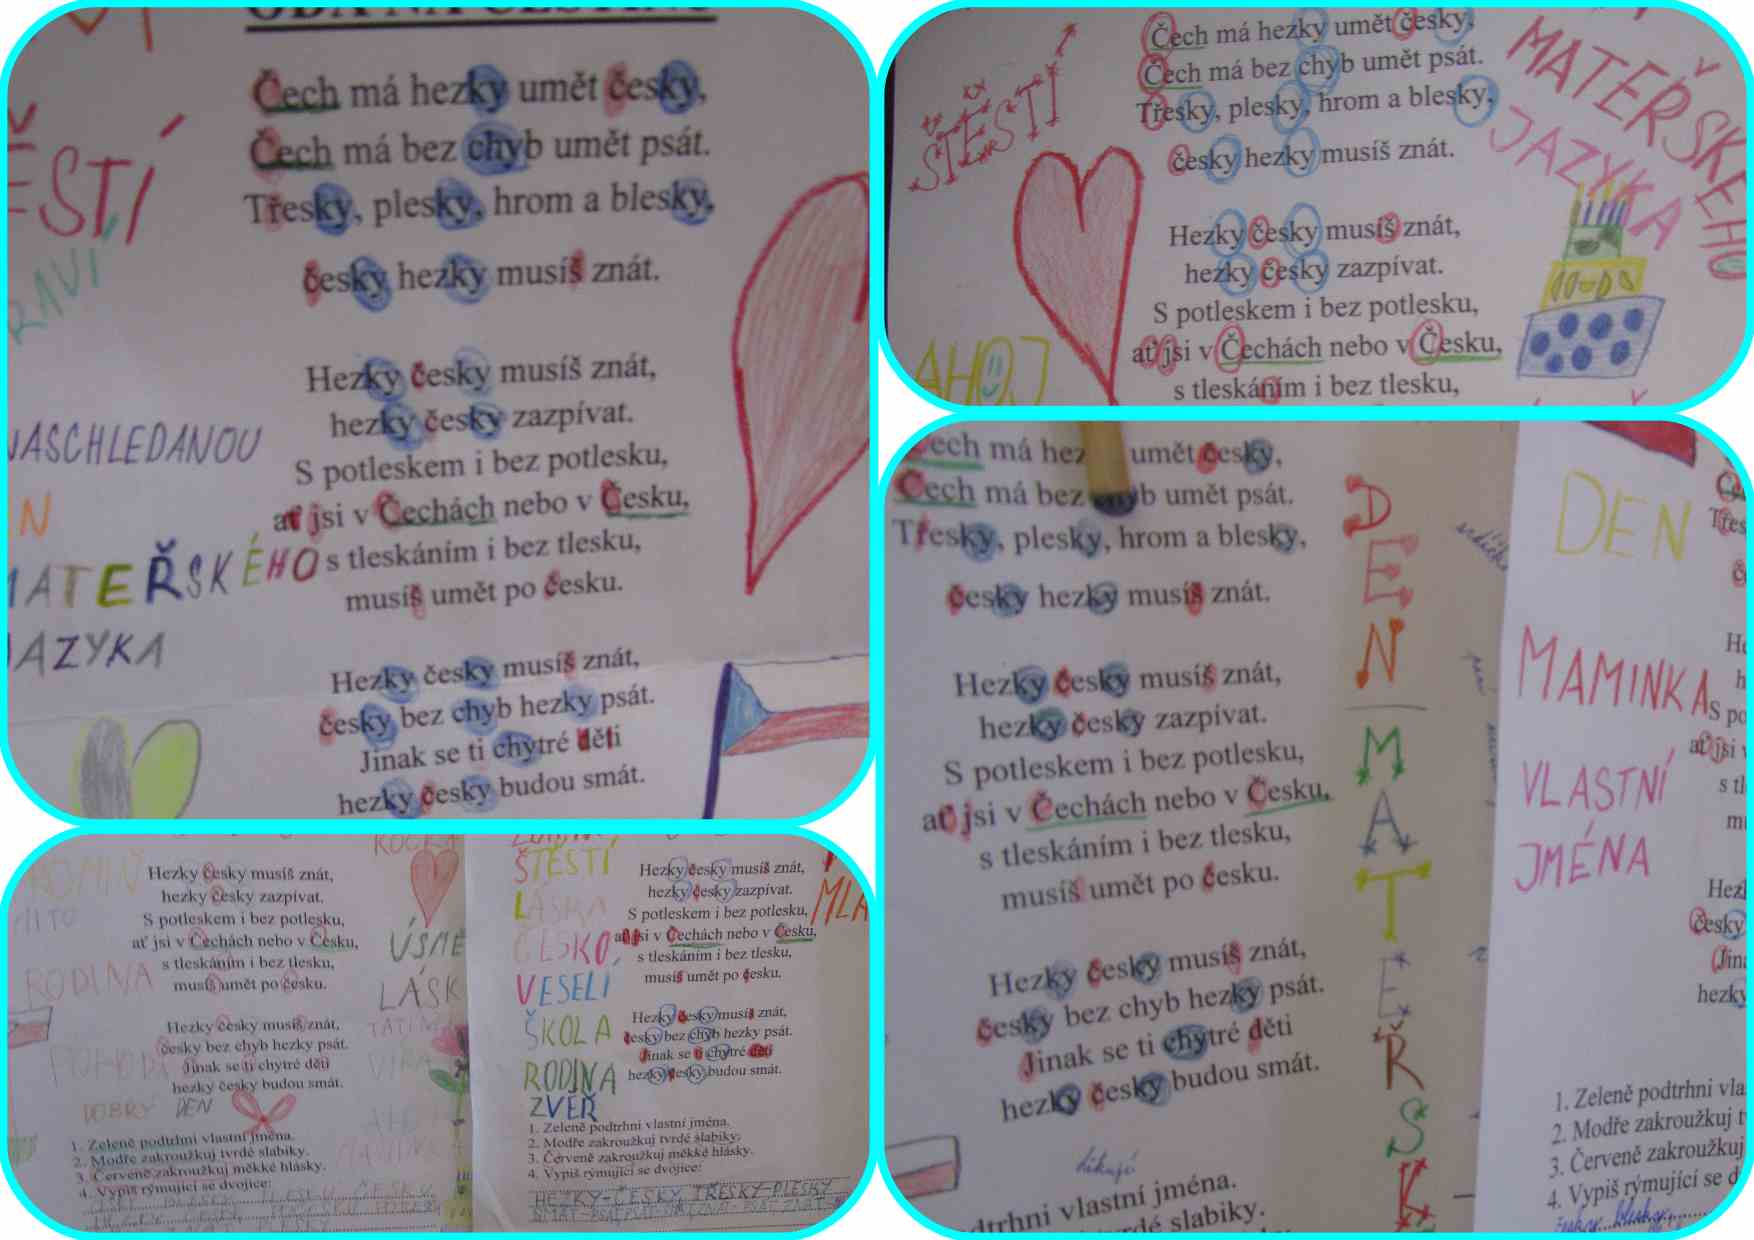 ÓDA NA ČEŠTINU
Čech má hezky umět česky,
Čech má bez chyb umět psát.
Třesky, plesky, hrom a blesky,
česky hezky musíš znát.
Hezky česky musíš znát,
hezky česky zazpívat.
S potleskem i bez potlesku,
ať jsi v Čechách nebo v Česku,
s tleskáním i bez tlesku,
musíš umět po česku.
Hezky česky musíš znát,
česky bez chyb hezky psát.
Jinak se ti chytré děti
hezky česky budou smát.
NASCHLEDANOU
MATEŘSKÉHO
JAZYKA
Čech má hezky umět česky,
Čech má bez chyb umět psát.
Třesky, plesky, hrom a blesky,
česky hezky musíš znát.
Hezky česky musíš znát,
hezky česky zazpívat.
S potleskem i bez potlesku,
ať jsi v Čechách nebo v Česku,
s tleskáním i bez tlesku,
ŠTĚSTÍ
AHOJ
MATEŘSKÉHO
JAZYKA
Hezky česky musíš znát,
hezky česky zazpívat.
S potleskem i bez potlesku,
ať jsi v Čechách nebo v Česku,
s tleskáním i bez tlesku,
musíš umět po česku.
Hezky česky musíš znát,
česky bez chyb hezky psát.
Jinak se ti chytré děti
hezky česky budou smát.
RODINA
POHODA
DOBRÝ DEN
1. Zeleně podtrhni vlastní jména.
2. Modře zakroužkuj tvrdé slabiky.
3. Červeně zakroužkuj měkké hlásky.
4. Vypiš rýmující se dvojice:
ŠTĚSTÍ
LÁSKA
ČESKO
VESELÍ
ŠKOLA
RODINA
ZVĚŘ
Hezky česky musíš znát,
hezky česky zazpívat.
S potleskem i bez potlesku,
ať jsi v Čechách nebo v Česku,
s tleskáním i bez tlesku,
musíš umět po česku.
Hezky česky musíš znát,
česky bez chyb hezky psát.
Jinak se ti chytré děti
hezky česky budou smát.
1. Zeleně podtrhni vlastní jména.
2. Modře zakroužkuj tvrdé slabiky.
3. Červeně zakroužkuj měkké hlásky.
4. Vypiš rýmující se dvojice:
HEZKY-ČESKY, TŘESKY-PLESKY
Čech má umět česky,
Čech má bez chyb umět psát.
Třesky, plesky, hrom a blesky,
česky hezky musíš znát.
Hezky česky musíš znát,
hezky česky zazpívat.
S potleskem i bez potlesku,
ať jsi v Čechách nebo v Česku,
s tleskáním i bez tlesku,
musíš umět po česku.
Hezky česky musíš znát,
česky bez chyb hezky psát.
Jinak se ti chytré děti
hezky česky budou smát.
děkuji
vlastní jména.
tvrdé slabiky.
DEN MATEŘSK
DEN
MAMINKA
VLASTNÍ
JMÉNA
1. Zeleně podtrhni
2. Modře zakroužkuj
3. Červeně zakroužkuj
4. Vypiš rýmující se